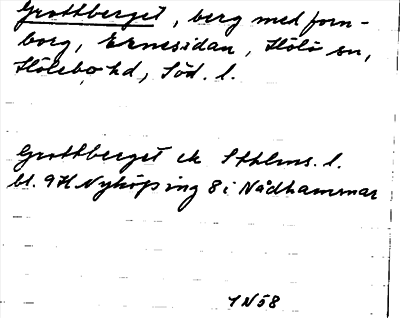 Grottberget, berg med forn-
borg, Ernesidan, Hölö sn,
Hölebo hd, Söd. l.
Grottberget ek Sthlms. l.
bl. 9H Nyköping 8i Nådhammar
1N58